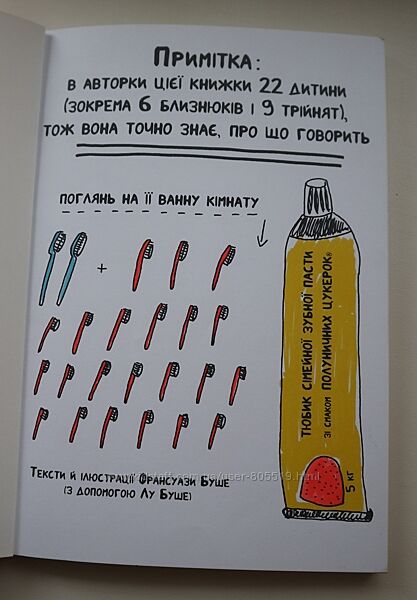 Примітка:
в авторки цієї книжки 22 дитини
(зокрема 6 близнюків і 9 трійнят),
тож вона точно знає, про що говорить
поглянь на її ванну кімнату
+
Тюбик сімейної зубної пасти
зі смаком полуничних цукерок®
5 кг
Тексти й ілюстрації Франсуази Буше
(з допомогою Лу Буше)